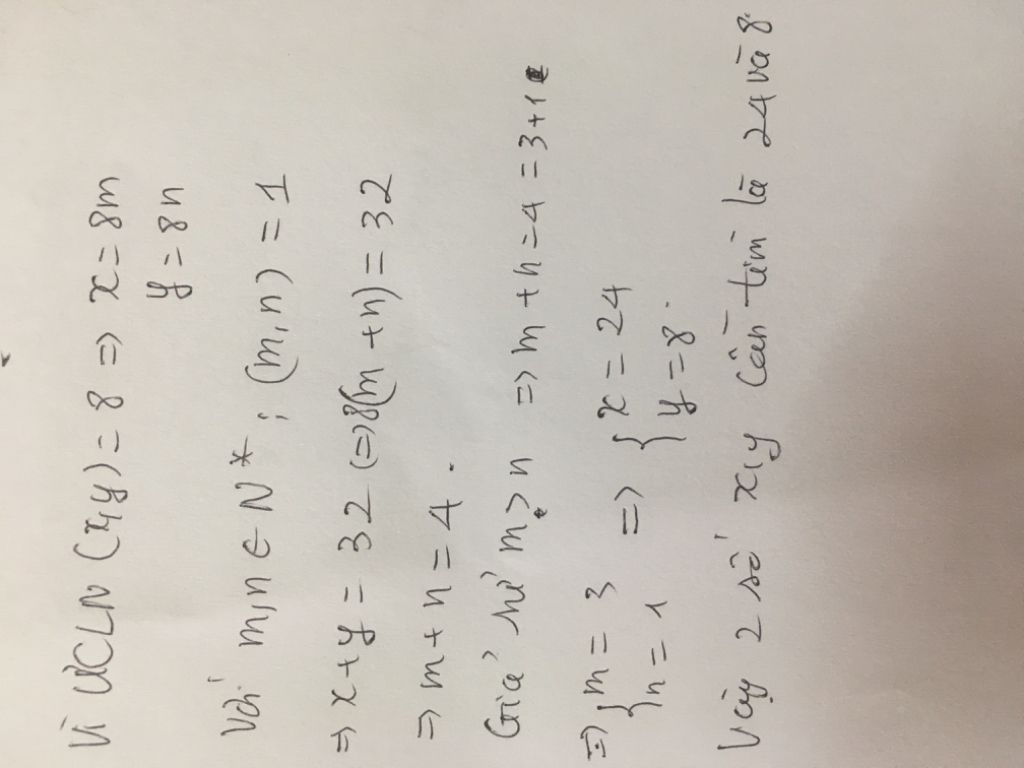 Vì ƯCLN (x,y) = 8 => x = 8m
y = 8n
Với m,n ∈ N* ; (m,n) = 1
=> x+y = 32 <=> 8(m+n) = 32
=> m+n = 4.
Giả sử m > n => m+n=4 = 3+1
=> { m = 3 => { x = 24
{ n = 1 { y = 8.
Vậy 2 số x,y cần tìm là 24 và 8